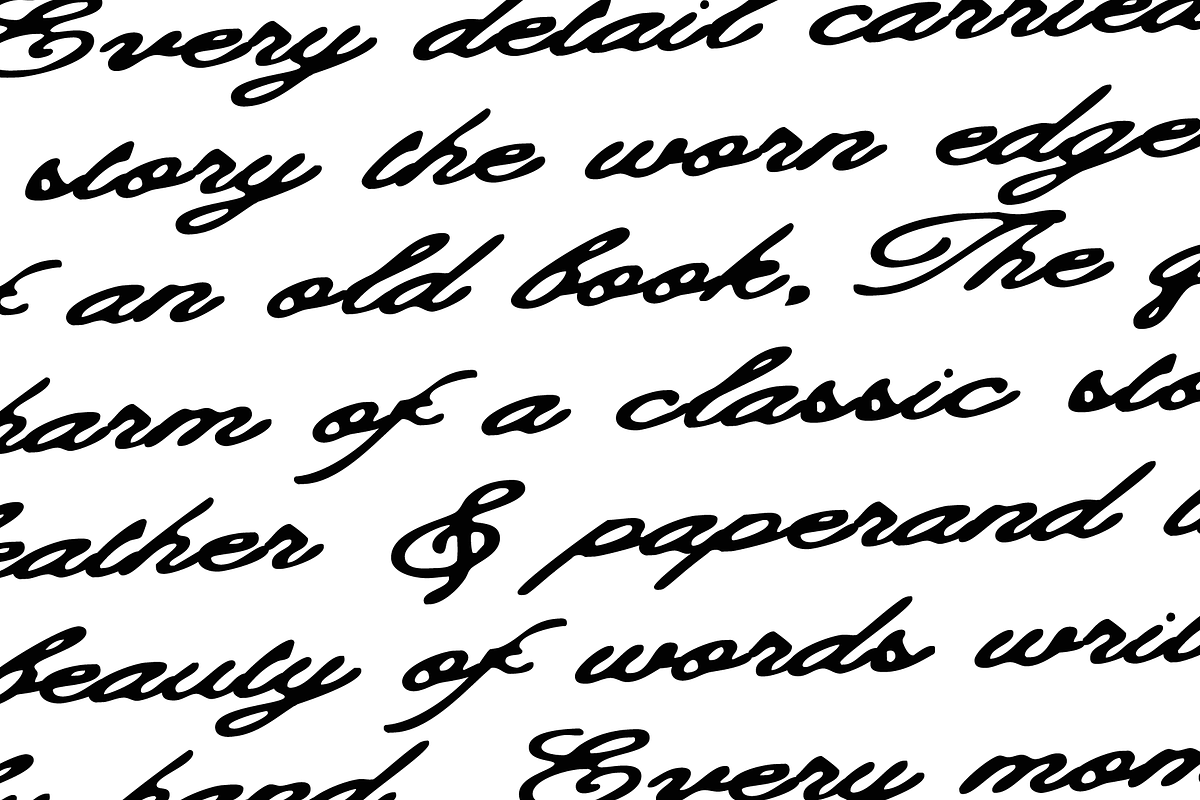 Every detail carried
story the worn edge
f an old book. The g
harm of a classic sto
eather & paperand t
beauty of words writ
by hand Every mom